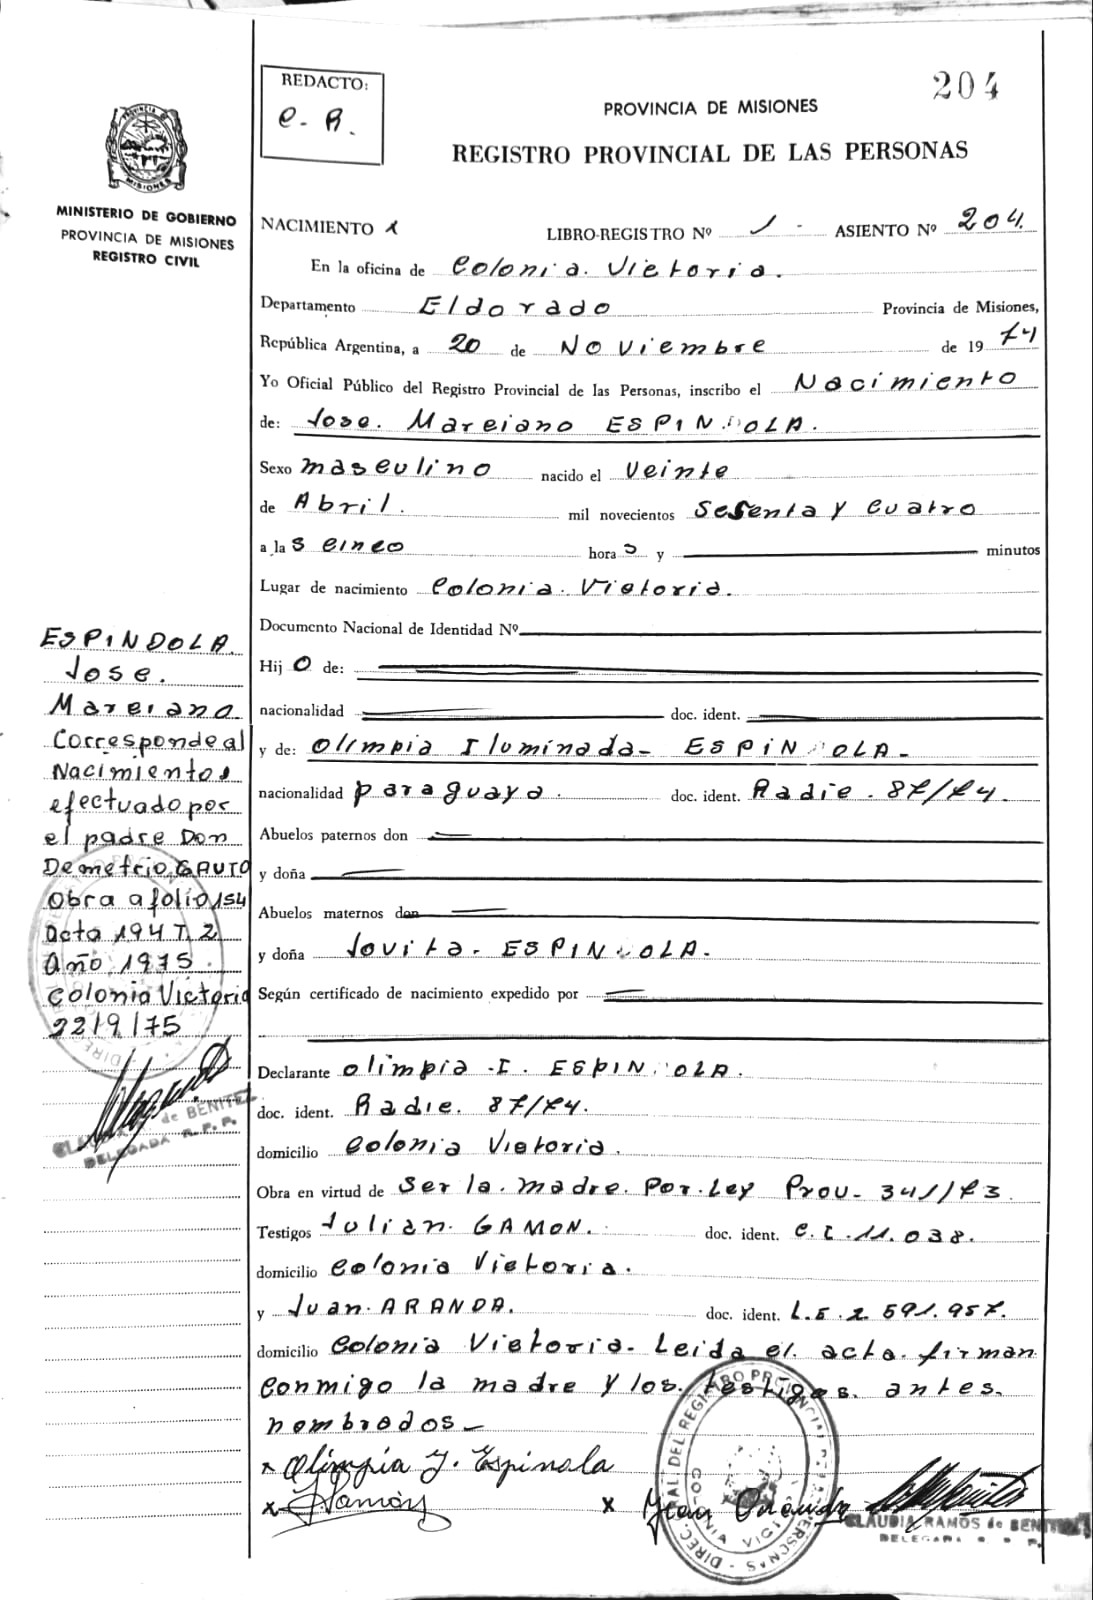 204
REDACTO:
C. R.
PROVINCIA DE MISIONES
REGISTRO PROVINCIAL DE LAS PERSONAS
MINISTERIO DE GOBIERNO
PROVINCIA DE MISIONES
REGISTRO CIVIL
NACIMIENTO X LIBRO-REGISTRO Nº 1 - ASIENTO Nº 204.
En la oficina de Colonia. Victoria.
Departamento Eldorado Provincia de Misiones,
República Argentina, a 20 de Noviembre de 1974
Yo Oficial Público del Registro Provincial de las Personas, inscribo el Nacimiento
de: Jose. Marciano ESPINDOLA.
Sexo masculino nacido el veinte
de Abril. mil novecientos sesenta y cuatro
a las cinco horas y minutos
Lugar de nacimiento Colonia. Victoria.
Documento Nacional de Identidad Nº
Hijo de:
nacionalidad doc. ident.
y de: Olimpia Iluminada- ESPINDOLA-
nacionalidad paraguaya. doc. ident. Radic. 87/74.
Abuelos paternos don
y doña
Abuelos maternos don
y doña Jovita- ESPINDOLA.
Según certificado de nacimiento expedido por
Declarante Olimpia -I. ESPINDOLA.
doc. ident. Radic. 87/74.
domicilio Colonia Victoria.
Obra en virtud de ser la. madre. Por. Ley Prov- 341/73.
Testigos Julian. GAMON. doc. ident. C. I. 11.038.
domicilio Colonia Victoria.
y Juan. ARANDA. doc. ident. L.E. 2 591.957.
domicilio Colonia Victoria- Leida el. acta. firman
conmigo la madre y los. testigos. antes.
nombrados-
x Olimpia Y. Espinola
x x Juan Aranda
CLAUDIA RAMOS de BENITEZ
DELEGADA R. P. P.
ESPINDOLA.
Jose.
Marciano
Corresponde al
Nacimiento,
efectuado por
el padre Don
Demetrio GAUTO
Obra a folio 154
Acta 194 T. 2
Año 1975.
Colonia Victoria
22/9/75
de BENITEZ
DELEGADA R. P. P.